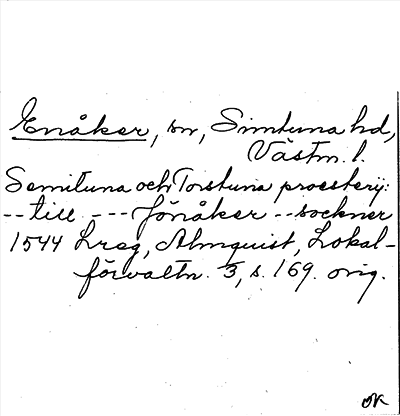 Enåker, sn, Simtuna hd,
Västm. l.
Semituna och Torstuna prosterij:
-- till --- Jönåker -- sockner
1544 Lreg, Almquist, Lokal-
förvaltn. 3, s. 169. orig.